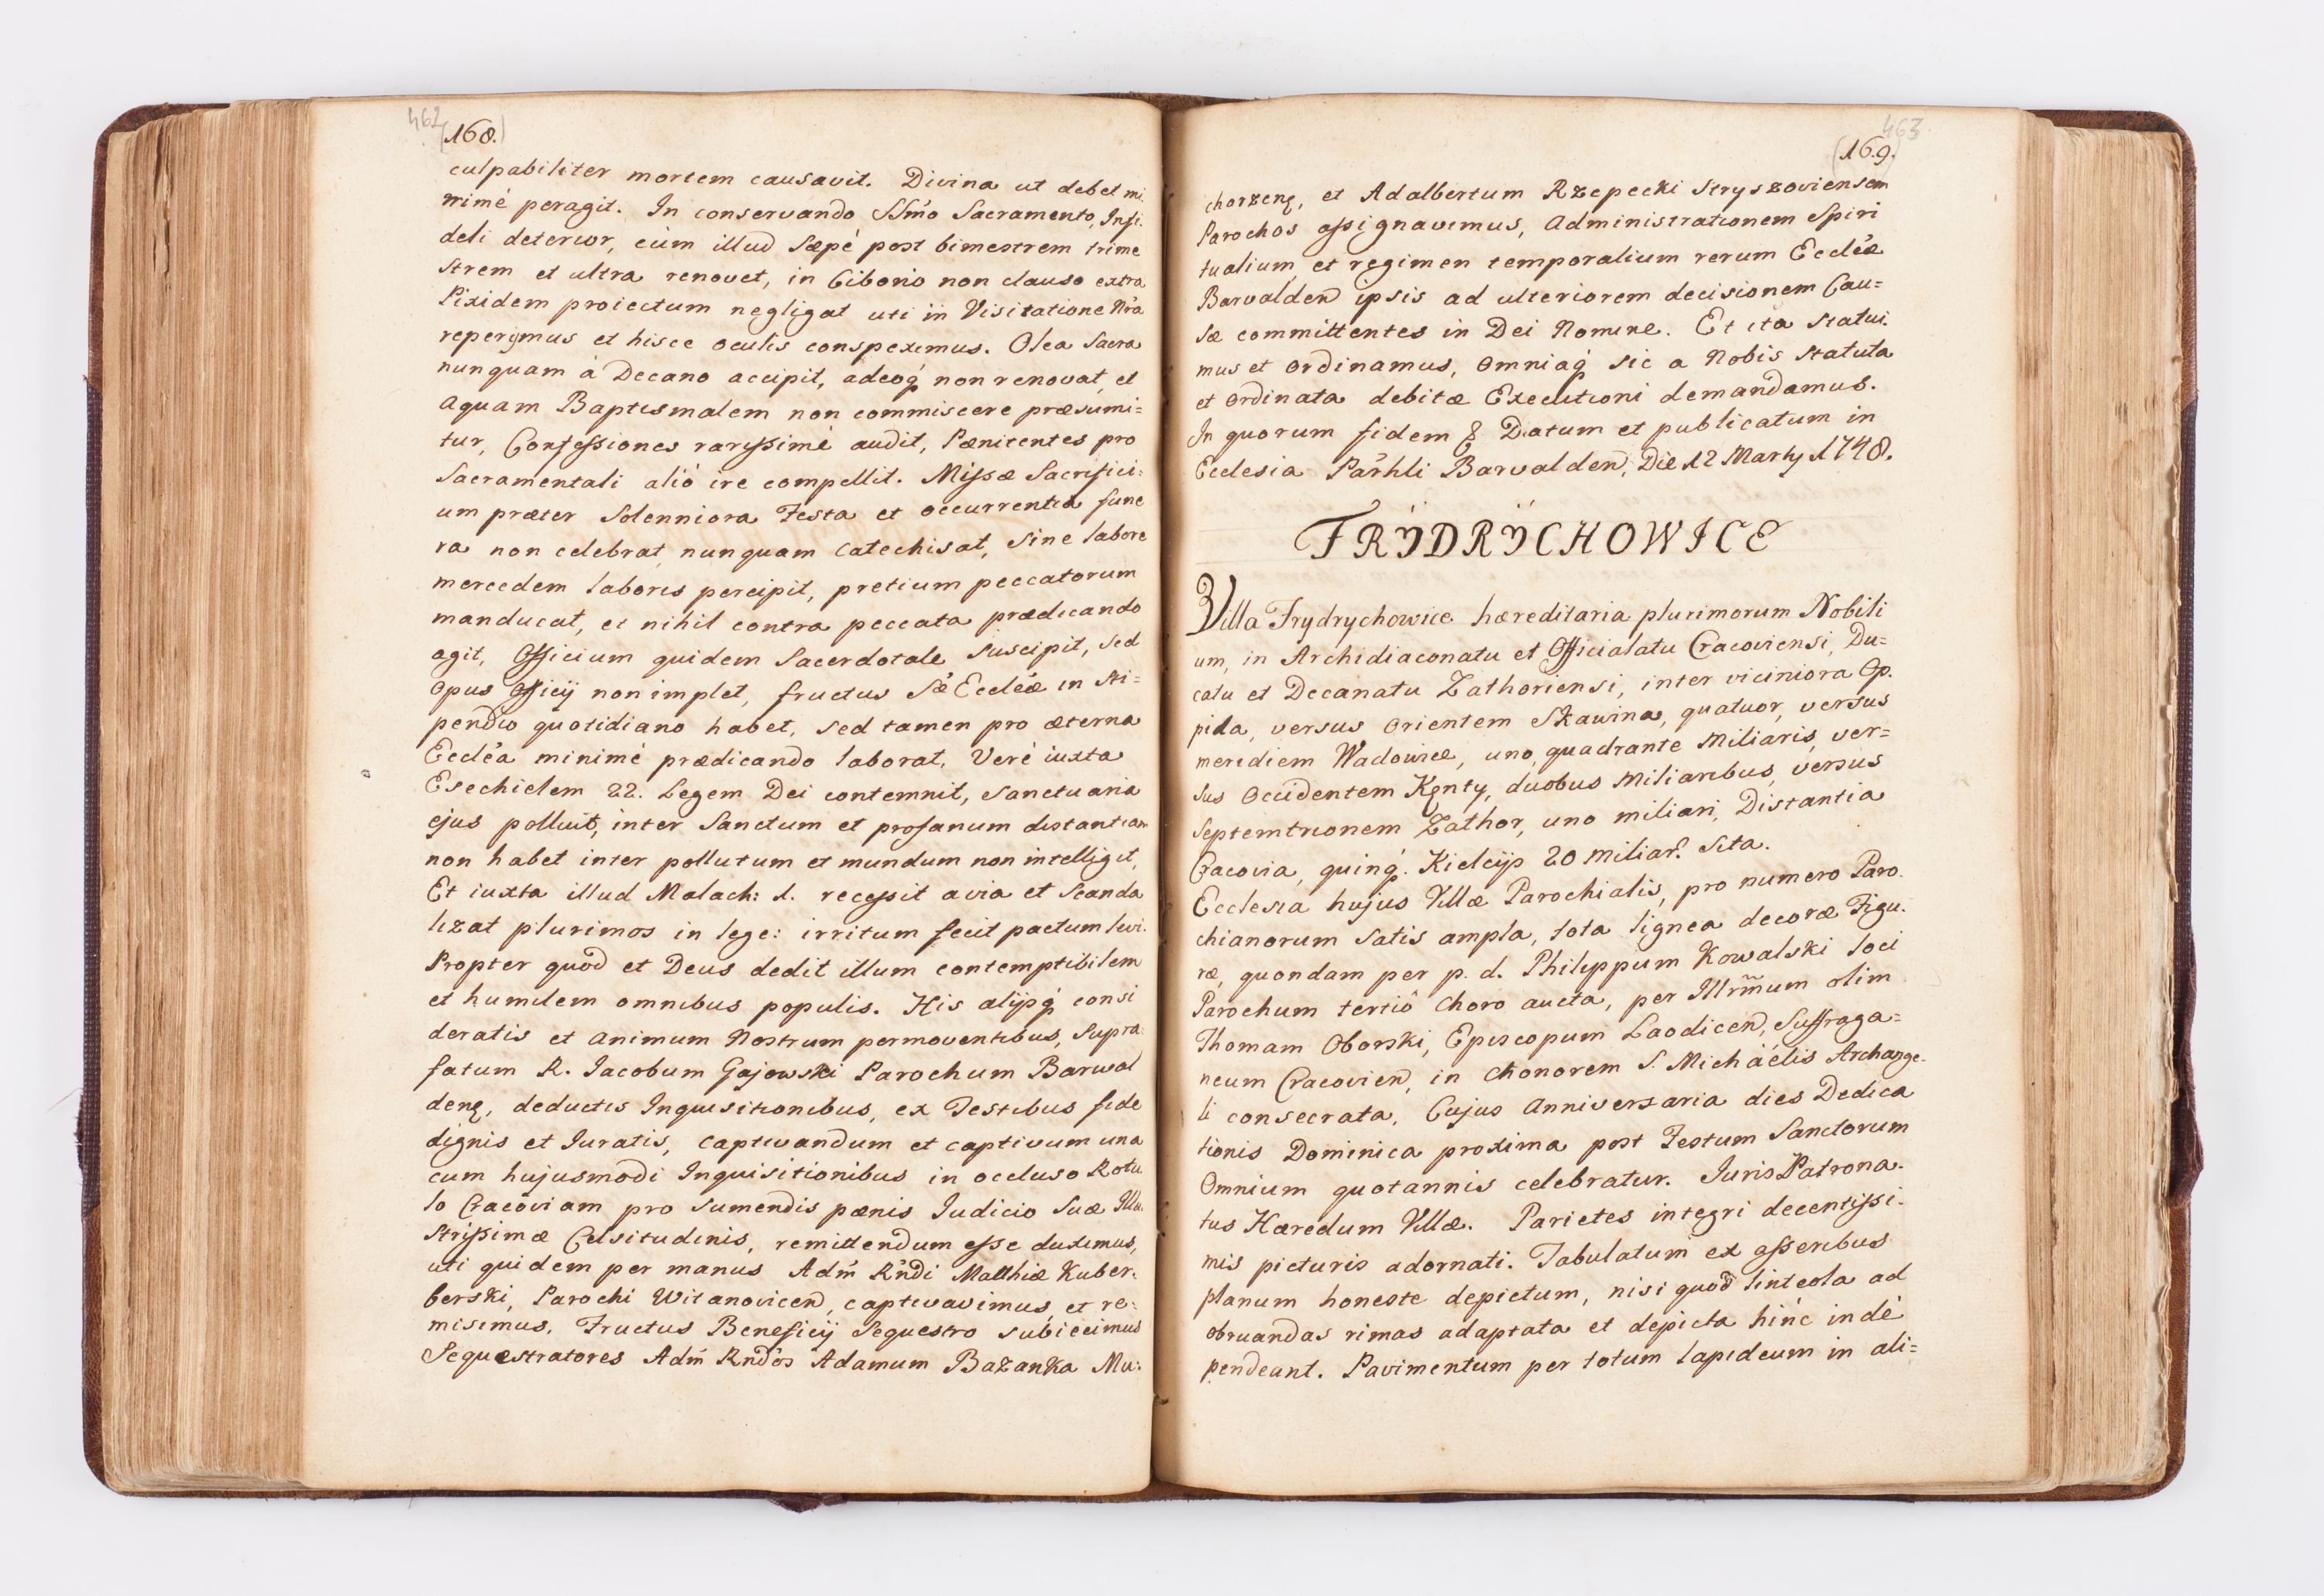 462
(168.)
culpabiliter mortem causavit. Divina ut debet mi
nimè peragit. In conservando SSm̃o Sacramento, Infi-
deli deterior, cùm illud sæpè post bimestrem trime
strem et ultra renovet, in Ciborio non clauso extra
Pixidem proiectum negligat uti in Visitatione Nr̃a
reperijmus et hisce oculis conspeximus. Olea Sacra
nunquam à Decano accipit, adeoq́ non renovat, et
aquam Baptismalem non commiscere præsumi=
tur, Confessiones rarissimè audit, Pænitentes pro
Sacramentali aliò ire compellit. Missæ Sacrifici=
um præter Solenniora Festa et occurrentia fune
ra non celebrat, nunquam Catechisat, sine labore
mercedem laboris percipit, pretium peccatorum
manducat, et nihil contra peccata prædicando
agit, Officium quidem Sacerdotale suscipit, sed
opus Officij non implet, fructus Sæ Eccleæ in sti=
pendio quotidiano habet, sed tamen pro æterna
Ecclea minimè prædicando laborat. Verè iuxta
Esechielem 22. Legem Dei contemnit, Sanctuaria
ejus polluit, inter Sanctum et profanum distantiam
non habet inter pollutum et mundum non intelligit,
Et iuxta illud Malach: 1. recessit a via et scanda
lizat plurimos in lege: irritum fecit pactum levi.
Propter quod et Deus dedit illum contemptibilem
et humilem omnibus populis. His alijsq́ consi
deratis et animum Nostrum permoventibus, supra
fatum R. Jacobum Gajowski Parochum Barwal
denę, deductis Inquisitionibus, ex Testibus fide
dignis et Juratis, captivandum et captivum una
cum hujusmodi Inquisitionibus in occluso Rotu
lo Cracoviam pro sumendis pænis Judicio Suæ Illu=
strissimæ Celsitudinis, remittendum esse duximus,
uti quidem per manus Adm̃ Rñdi Matthiæ Kuber=
berski, Parochi Witanovicen, captivavimus, et re=
misimus. Fructus Beneficij Sequestro subiecimus
Sequestratores Adm̃ Rndos Adamum Bazanka Mu=
463
(169.)
chorzenę, et Adalbertum Rzepecki Stryszoviensem
Parochos assignavimus, administrationem Spiri
tualium et regimen temporalium rerum Eccleæ
Barvalden ipsis ad ulteriorem decisionem Cau=
sæ committentes in Dei Nomine. Et ita statui
mus et ordinamus, omniaq́ sic a Nobis statuta
et ordinata debitæ Executioni demandamus.
In quorum fidem & Datum et publicatum in
Ecclesia Par̃hli Barvalden, Die 12 Martij 1748.
FRŸDRŸCHOWICE
Villa Frydrychowice hæreditaria plurimorum Nobili
um, in Archidiaconatu et Officialatu Cracoviensi, Du=
catu et Decanatu Zathoriensi, inter viciniora Op.
pida, versus Orientem Skawina, quatuor, versus
meridiem Wadowice, uno, quadrante miliaris, ver=
sus Occidentem Kęnty, duobus miliaribus, versus
Septemtrionem Zathor, uno miliari, Distantia
Cracovia, quinq́. Kielcijs 20 miliar. sita.
Ecclesia hujus Villæ Parochialis, pro numero Paro
chianorum satis ampla, tota lignea decoræ Figu=
ræ, quondam per p. d. Philippum Kowalski loci
Parochum tertiò Choro aucta, per Illrm̃um olim
Thomam Oborski, Episcopum Laodicen, Suffraga=
neum Cracovien, in chonorem S. Michaelis Archange=
li consecrata, Cujus anniversaria dies Dedica
tionis Dominica proxima post Festum Sanctorum
Omnium quotannis celebratur. Juris Patrona=
tus Hæredum Villæ. Parietes integri decentissi=
mis picturis adornati. Tabulatum ex asseribus
planum honeste depictum, nisi quod linteola ad
obruandas rimas adaptata et depicta hinc indè
pendeant. Pavimentum per totum lapideum in ali=